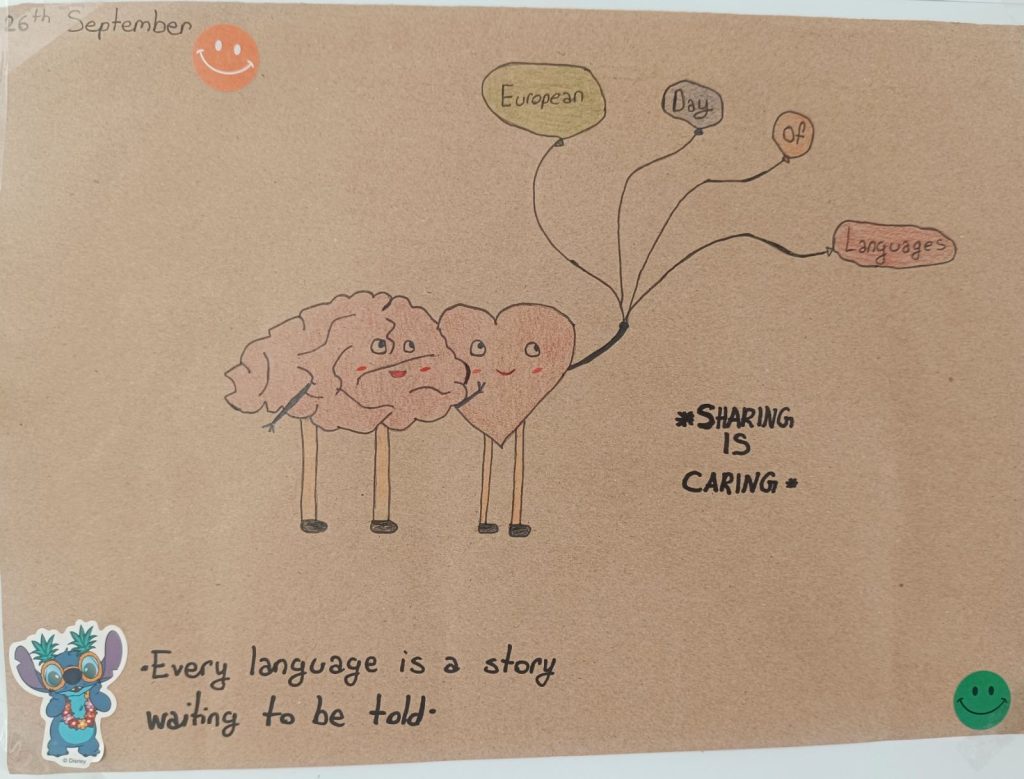 26th September
European
Day
Of
Languages
*SHARING
IS
CARING*
•Every language is a story
waiting to be told•
© Disney